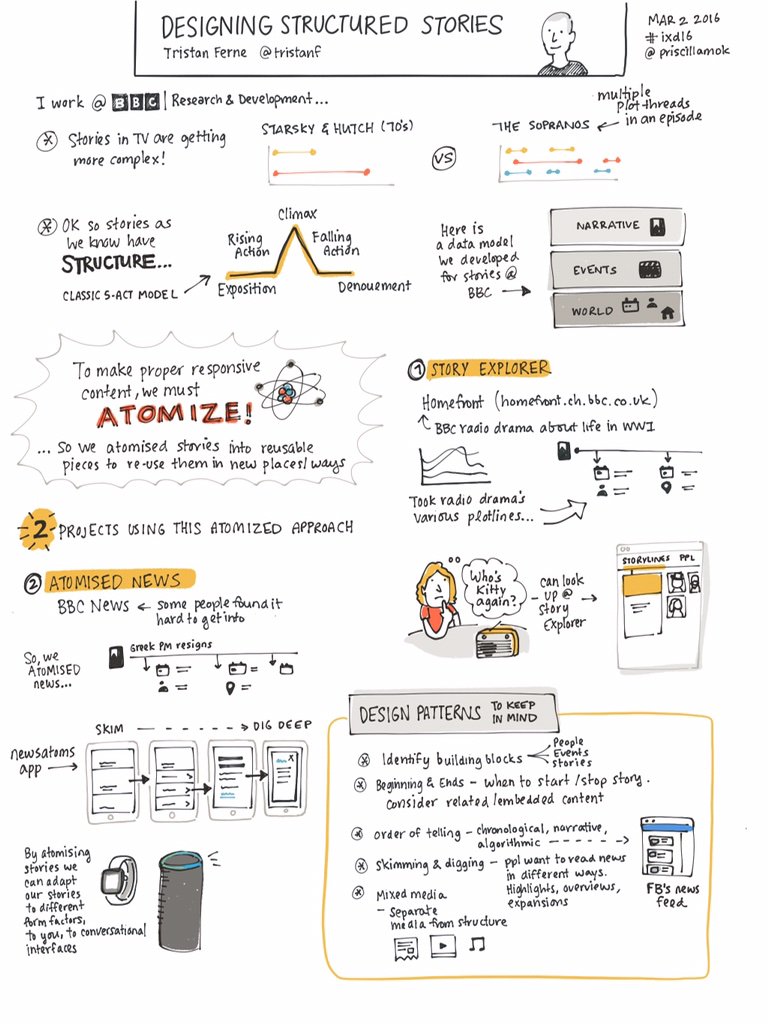 DESIGNING STRUCTURED STORIES
Tristan Ferne @tristanf
MAR 2 2016
#ixd16
@priscillamok
I work @ BBC | Research & Development...
Stories in TV are getting
more complex!
STARSKY & HUTCH (70's)
VS
THE SOPRANOS
multiple
plot threads
in an episode
OK so stories as
we know have
STRUCTURE...
CLASSIC 5-ACT MODEL
Exposition
Rising
Action
Climax
Falling
Action
Denouement
Here is
a data model
we developed
for stories @
BBC
NARRATIVE
EVENTS
WORLD
To make proper responsive
content, we must
ATOMIZE!
... So we atomised stories into reusable
pieces to re-use them in new places/ways
2 PROJECTS USING THIS ATOMIZED APPROACH
1 STORY EXPLORER
Homefront (homefront.ch.bbc.co.uk)
BBC radio drama about life in WWI
Took radio drama's
various plotlines...
Who's
Kitty
again?
can look
up @
Story
Explorer
STORYLINES PPL
2 ATOMISED NEWS
BBC News ← some people found it
hard to get into
So, we
ATOMISED
news...
Greek PM resigns
SKIM → DIG DEEP
newsatoms
app
X
By atomising
stories we
can adapt
our stories
to different
form factors,
to you, to conversational
interfaces
DESIGN PATTERNS TO KEEP
IN MIND
Identify building blocks
People
Events
Stories
Beginning & Ends - when to start/stop story.
Consider related/embedded content
Order of telling - chronological, narrative,
algorithmic
FB's news
feed
Skimming & digging - ppl want to read news
in different ways.
Highlights, overviews,
expansions
Mixed media
- Separate
media from structure